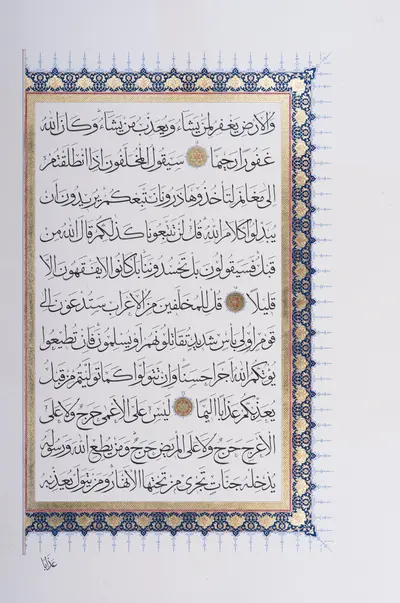 وَالْاَرْضِ يَغْفِرُ لِمَنْ يَشَاءُ وَيُعَذِّبُ مَنْ يَشَاءُ وَكَانَ اللهُ
غَفُورًا رَحِيمًا سَيَقُولُ الْمُخَلَّفُونَ اِذَا انْطَلَقْتُمْ
اِلٰى مَغَانِمَ لِتَأْخُذُوهَا ذَرُونَا نَتَّبِعْكُمْ يُرِيدُونَ اَنْ
يُبَدِّلُوا كَلَامَ اللهِ قُلْ لَنْ تَتَّبِعُونَا كَذٰلِكُمْ قَالَ اللهُ مِنْ
قَبْلُ فَسَيَقُولُونَ بَلْ تَحْسُدُونَنَا بَلْ كَانُوا لَا يَفْقَهُونَ اِلَّا
قَلِيلًا قُلْ لِلْمُخَلَّفِينَ مِنَ الْاَعْرَابِ سَتُدْعَوْنَ اِلٰى
قَوْمٍ اُولِى بَأْسٍ شَدِيدٍ تُقَاتِلُونَهُمْ اَوْ يُسْلِمُونَ فَاِنْ تُطِيعُوا
يُؤْتِكُمُ اللهُ اَجْرًا حَسَنًا وَاِنْ تَتَوَلَّوْا كَمَا تَوَلَّيْتُمْ مِنْ قَبْلُ
يُعَذِّبْكُمْ عَذَابًا اَلِيمًا لَيْسَ عَلَى الْاَعْمٰى حَرَجٌ وَلَا عَلَى
الْاَعْرَجِ حَرَجٌ وَلَا عَلَى الْمَرِيضِ حَرَجٌ وَمَنْ يُطِعِ اللهَ وَرَسُولَهُ
يُدْخِلْهُ جَنَّاتٍ تَجْرِى مِنْ تَحْتِهَا الْاَنْهَارُ وَمَنْ يَتَوَلَّ يُعَذِّبْهُ
عَذَابًا